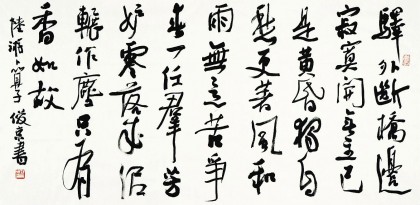 驛外斷橋邊
寂寞開無主已
是黄昏獨自
愁更著風和
雨無意苦爭
春一任羣芳
妒零落成泥
輾作塵只有
香如故
陸游卜算子 俊京書